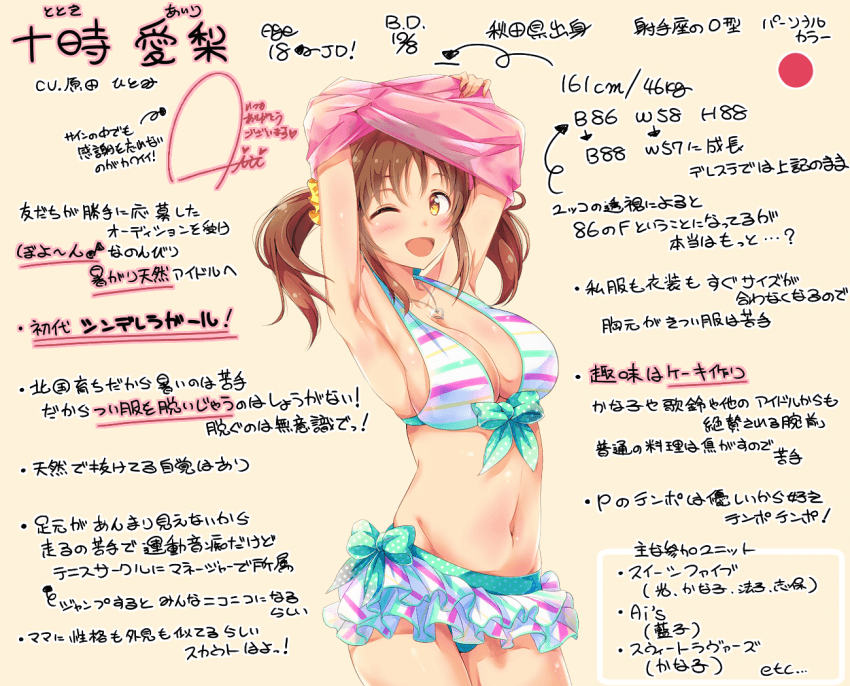 ととき あいり
十時 愛梨
age
18 JD!
B.D.
12/8
秋田県出身
射手座のO型
パーソナル
カラー
CV.原田 ひとみ
いつも
ありがとう
ございます♡
サインの中でも
感謝を忘れない
のがカワイイ!
161cm/46kg
B86 W58 H88
B88 W57に成長
デレステでは上記のまま
ユッコの透視によると
86のFということになってるが
本当はもっと…?
友だちが勝手に応募した
オーディションを受け
ぽよ〜ん♪なのんびり
暑がり天然アイドルへ
・初代 シンデレラガール!
・北国育ちだから暑いのは苦手
だからつい服を脱いじゃうのはしょうがない!
脱ぐのは無意識でっ!
・天然で抜けてる自覚はあり
・足元があんまり見えないから
走るの苦手で運動音痴だけど
テニスサークルにマネージャーで所属
ジャンプするとみんなニコニコになる
らしい
・ママに性格も外見も似てるらしい
スカウトはよ〜!
・私服も衣装もすぐサイズが
合わなくなるので
胸元がきつい服は苦手
・趣味はケーキ作り
かな子や歌鈴や他のアイドルからも
絶賛される腕前
普通の料理は焦がすので
苦手
・Pのテンポは優しいから好き
テンポテンポ!
主な参加ユニット
・スイーツファイブ
(光、かな子、法子、志保)
・Ai's
(藍子)
・スウィートラヴァーズ
(かな子)
etc...